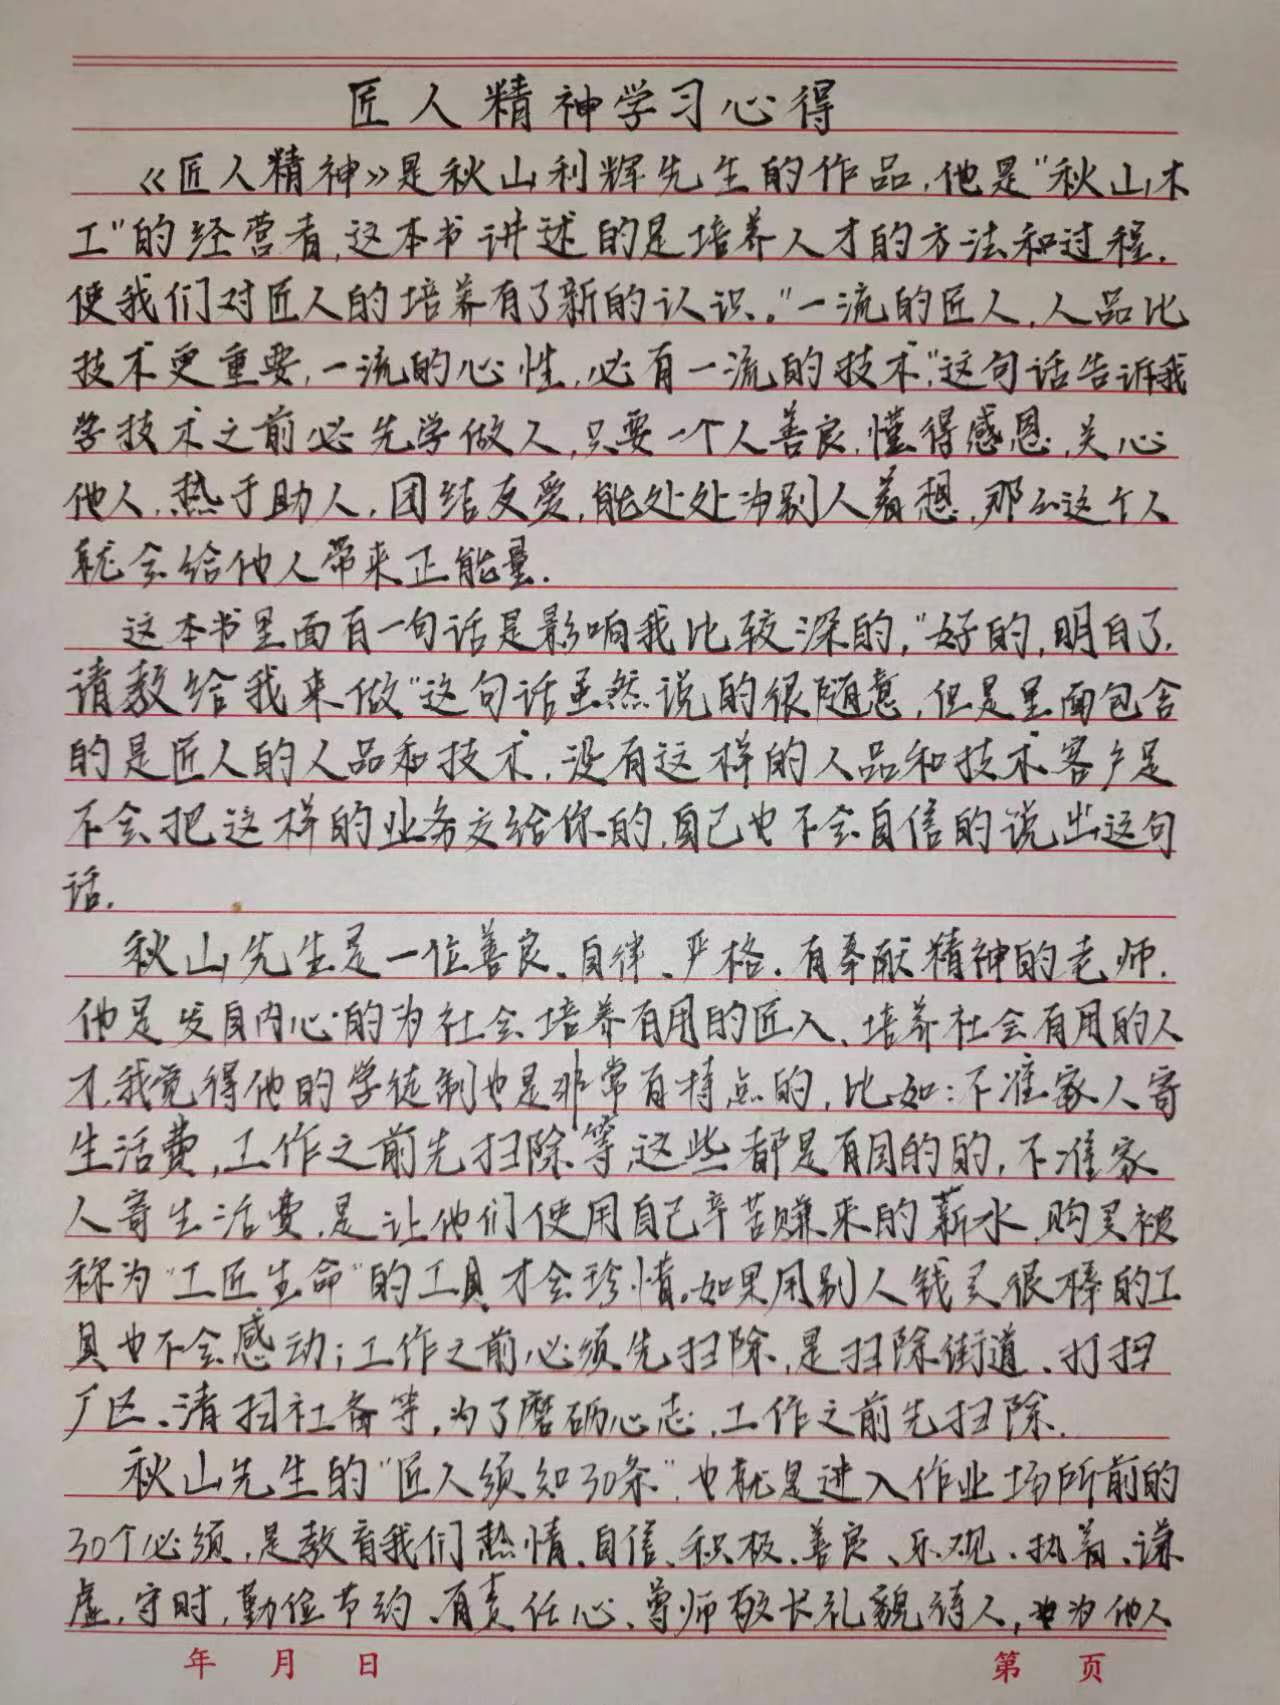 匠人精神学习心得
《匠人精神》是秋山利辉先生的作品,他是“秋山木
工”的经营者,这本书讲述的是培养人才的方法和过程.
使我们对匠人的培养有了新的认识。“一流的匠人,人品比
技术更重要,一流的心性,必有一流的技术”,这句话告诉我
学技术之前必先学做人,只要一个人善良,懂得感恩,关心
他人,热于助人,团结友爱,能处处为别人着想,那么这个人
就会给他人带来正能量.
这本书里面有一句话是影响我比较深的,“好的,明白了,
请教给我来做”这句话虽然说的很随意,但是里面包含
的是匠人的人品和技术,没有这样的人品和技术客户是
不会把这样的业务交给你的,自己也不会自信的说出这句
话.
秋山先生是一位善良、自律、严格、有奉献精神的老师.
他是发自内心的为社会培养有用的匠人、培养社会有用的人
才,我觉得他的学徒制也是非常有特点的,比如:不准家人寄
生活费,工作之前先扫除等,这些都是有目的的,不准家
人寄生活费,是让他们使用自己辛苦赚来的薪水,购买被
称为“工匠生命”的工具才会珍惜,如果用别人钱买很棒的工
具也不会感动;工作之前必须先扫除,是扫除街道、打扫
厂区、清扫社备等,为了磨砺心志,工作之前先扫除.
秋山先生的“匠人须知30条”,也就是进入作业场所前的
30个必须,是教育我们热情、自信、积极、善良、乐观、执着、谦
虚,守时,勤俭节约、有责任心、尊师敬长礼貌待人,也为他人
年 月 日
第 页